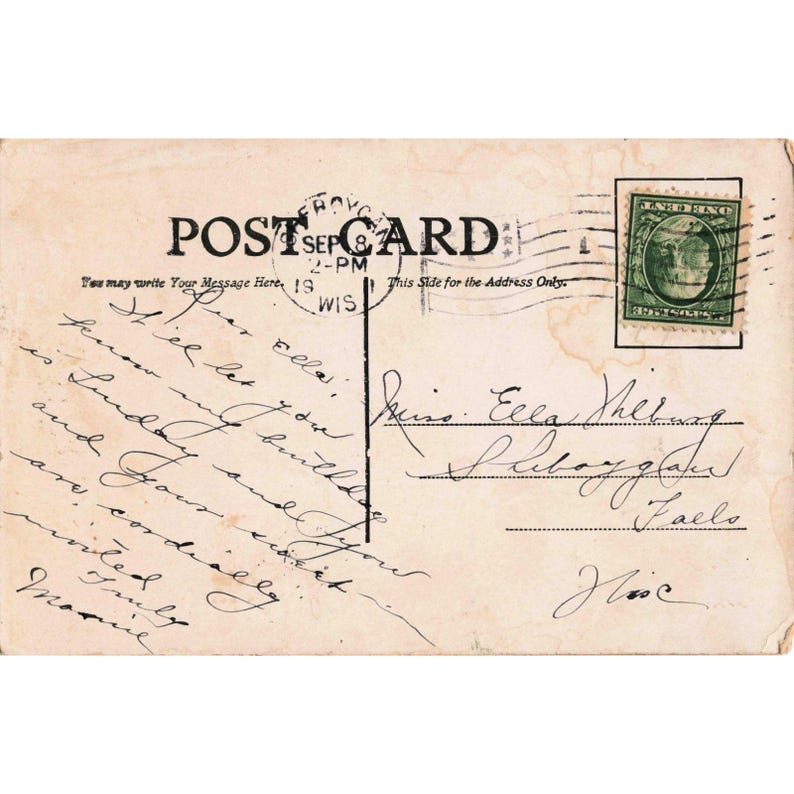 POST CARD
SHEBOYGAN
SEP 8
2-PM
WIS
1
ONE CENT
U.S. POSTAGE
You may write Your Message Here.
This Side for the Address Only.
Dear Ella,
Will let you
know my birthday
is Sunday and you
and your sweet
are cordially
invited
Truly
Miss. Ella
Sheboygan
Falls
Wisc